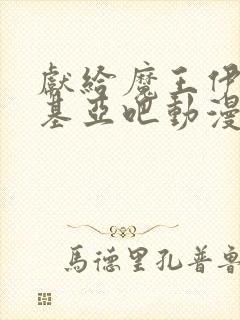 獻給魔王伊
基亞吧動漫
馬德里孔普魯